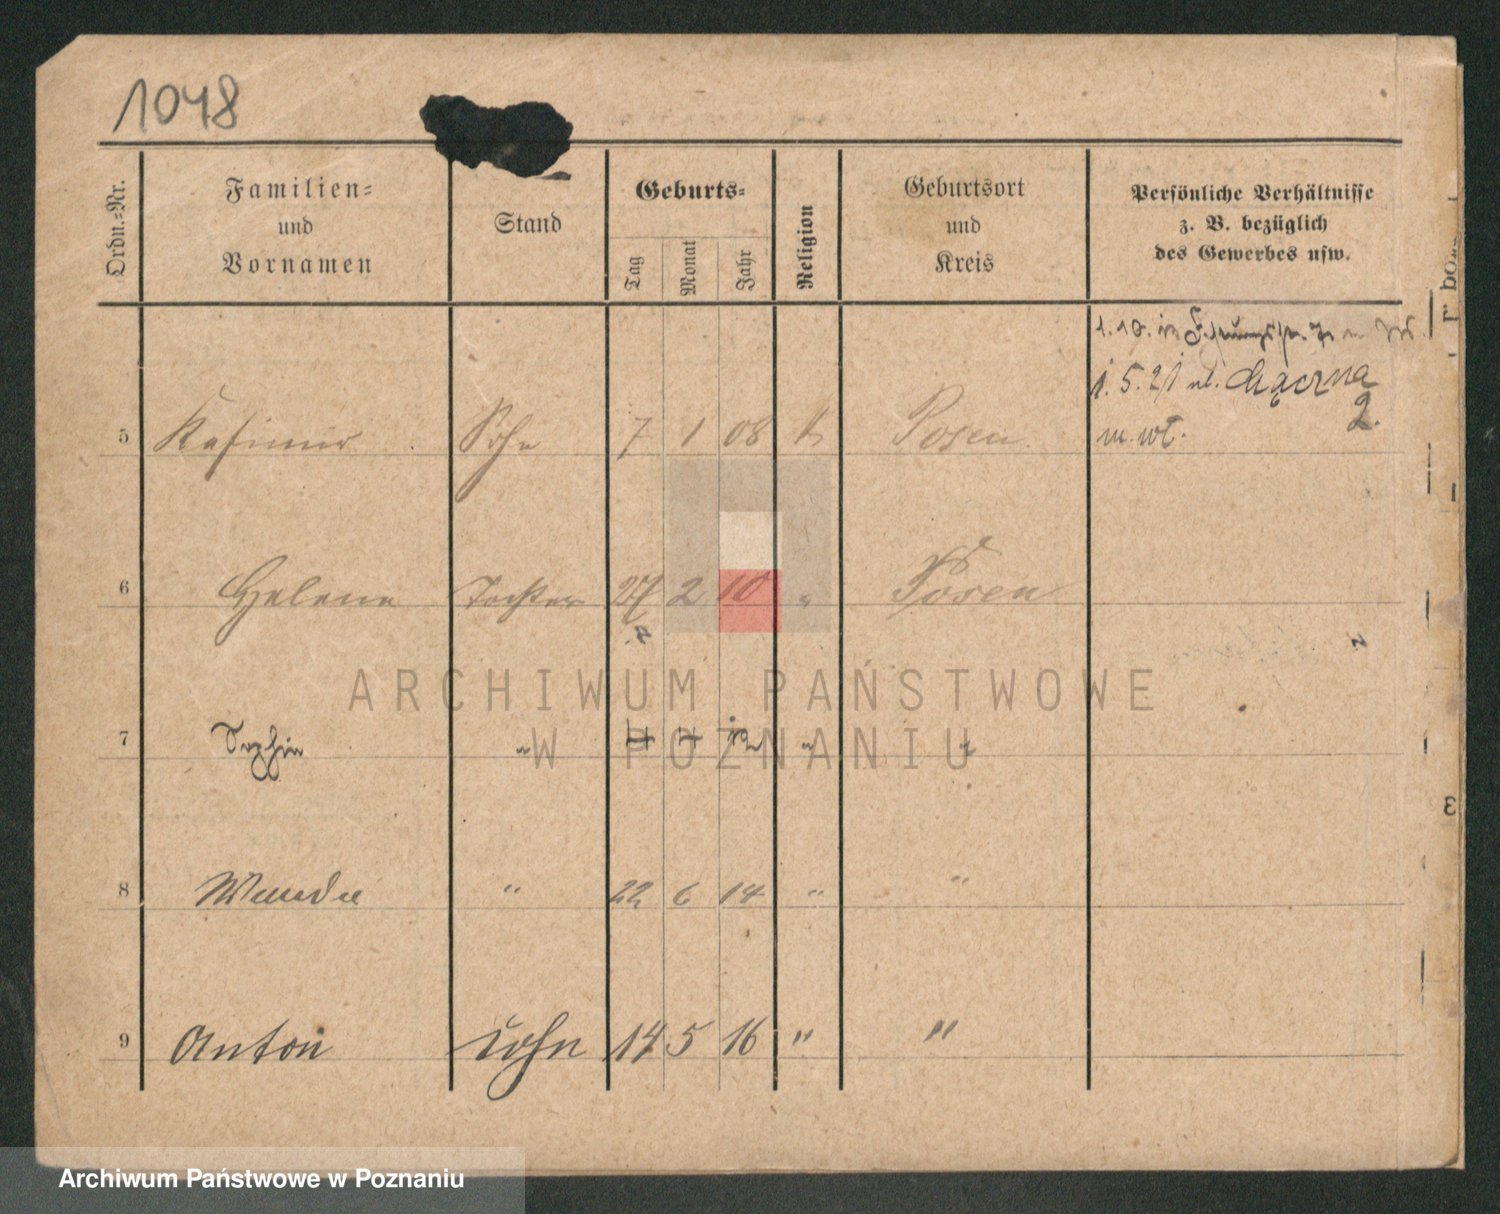 1048
Ordn.=Nr.
Familien=
und
Vornamen
Stand
Geburts=
Tag
Monat
Jahr
Religion
Geburtsort
und
Kreis
Persönliche Verhältnisse
z. B. bezüglich
des Gewerbes usw.
1. 5. 21 ul. Łączna
2.
m. wł.
5 Kasimir Sohn 7 1 08 k Posen
6 Helene Tochter 27 2 10 " Posen
7 Sophie " 4 4 12 " "
8 Wanda " 22 6 14 " "
9 Anton Sohn 14 5 16 " "
ARCHIWUM PAŃSTWOWE
W POZNANIU
Archiwum Państwowe w Poznaniu